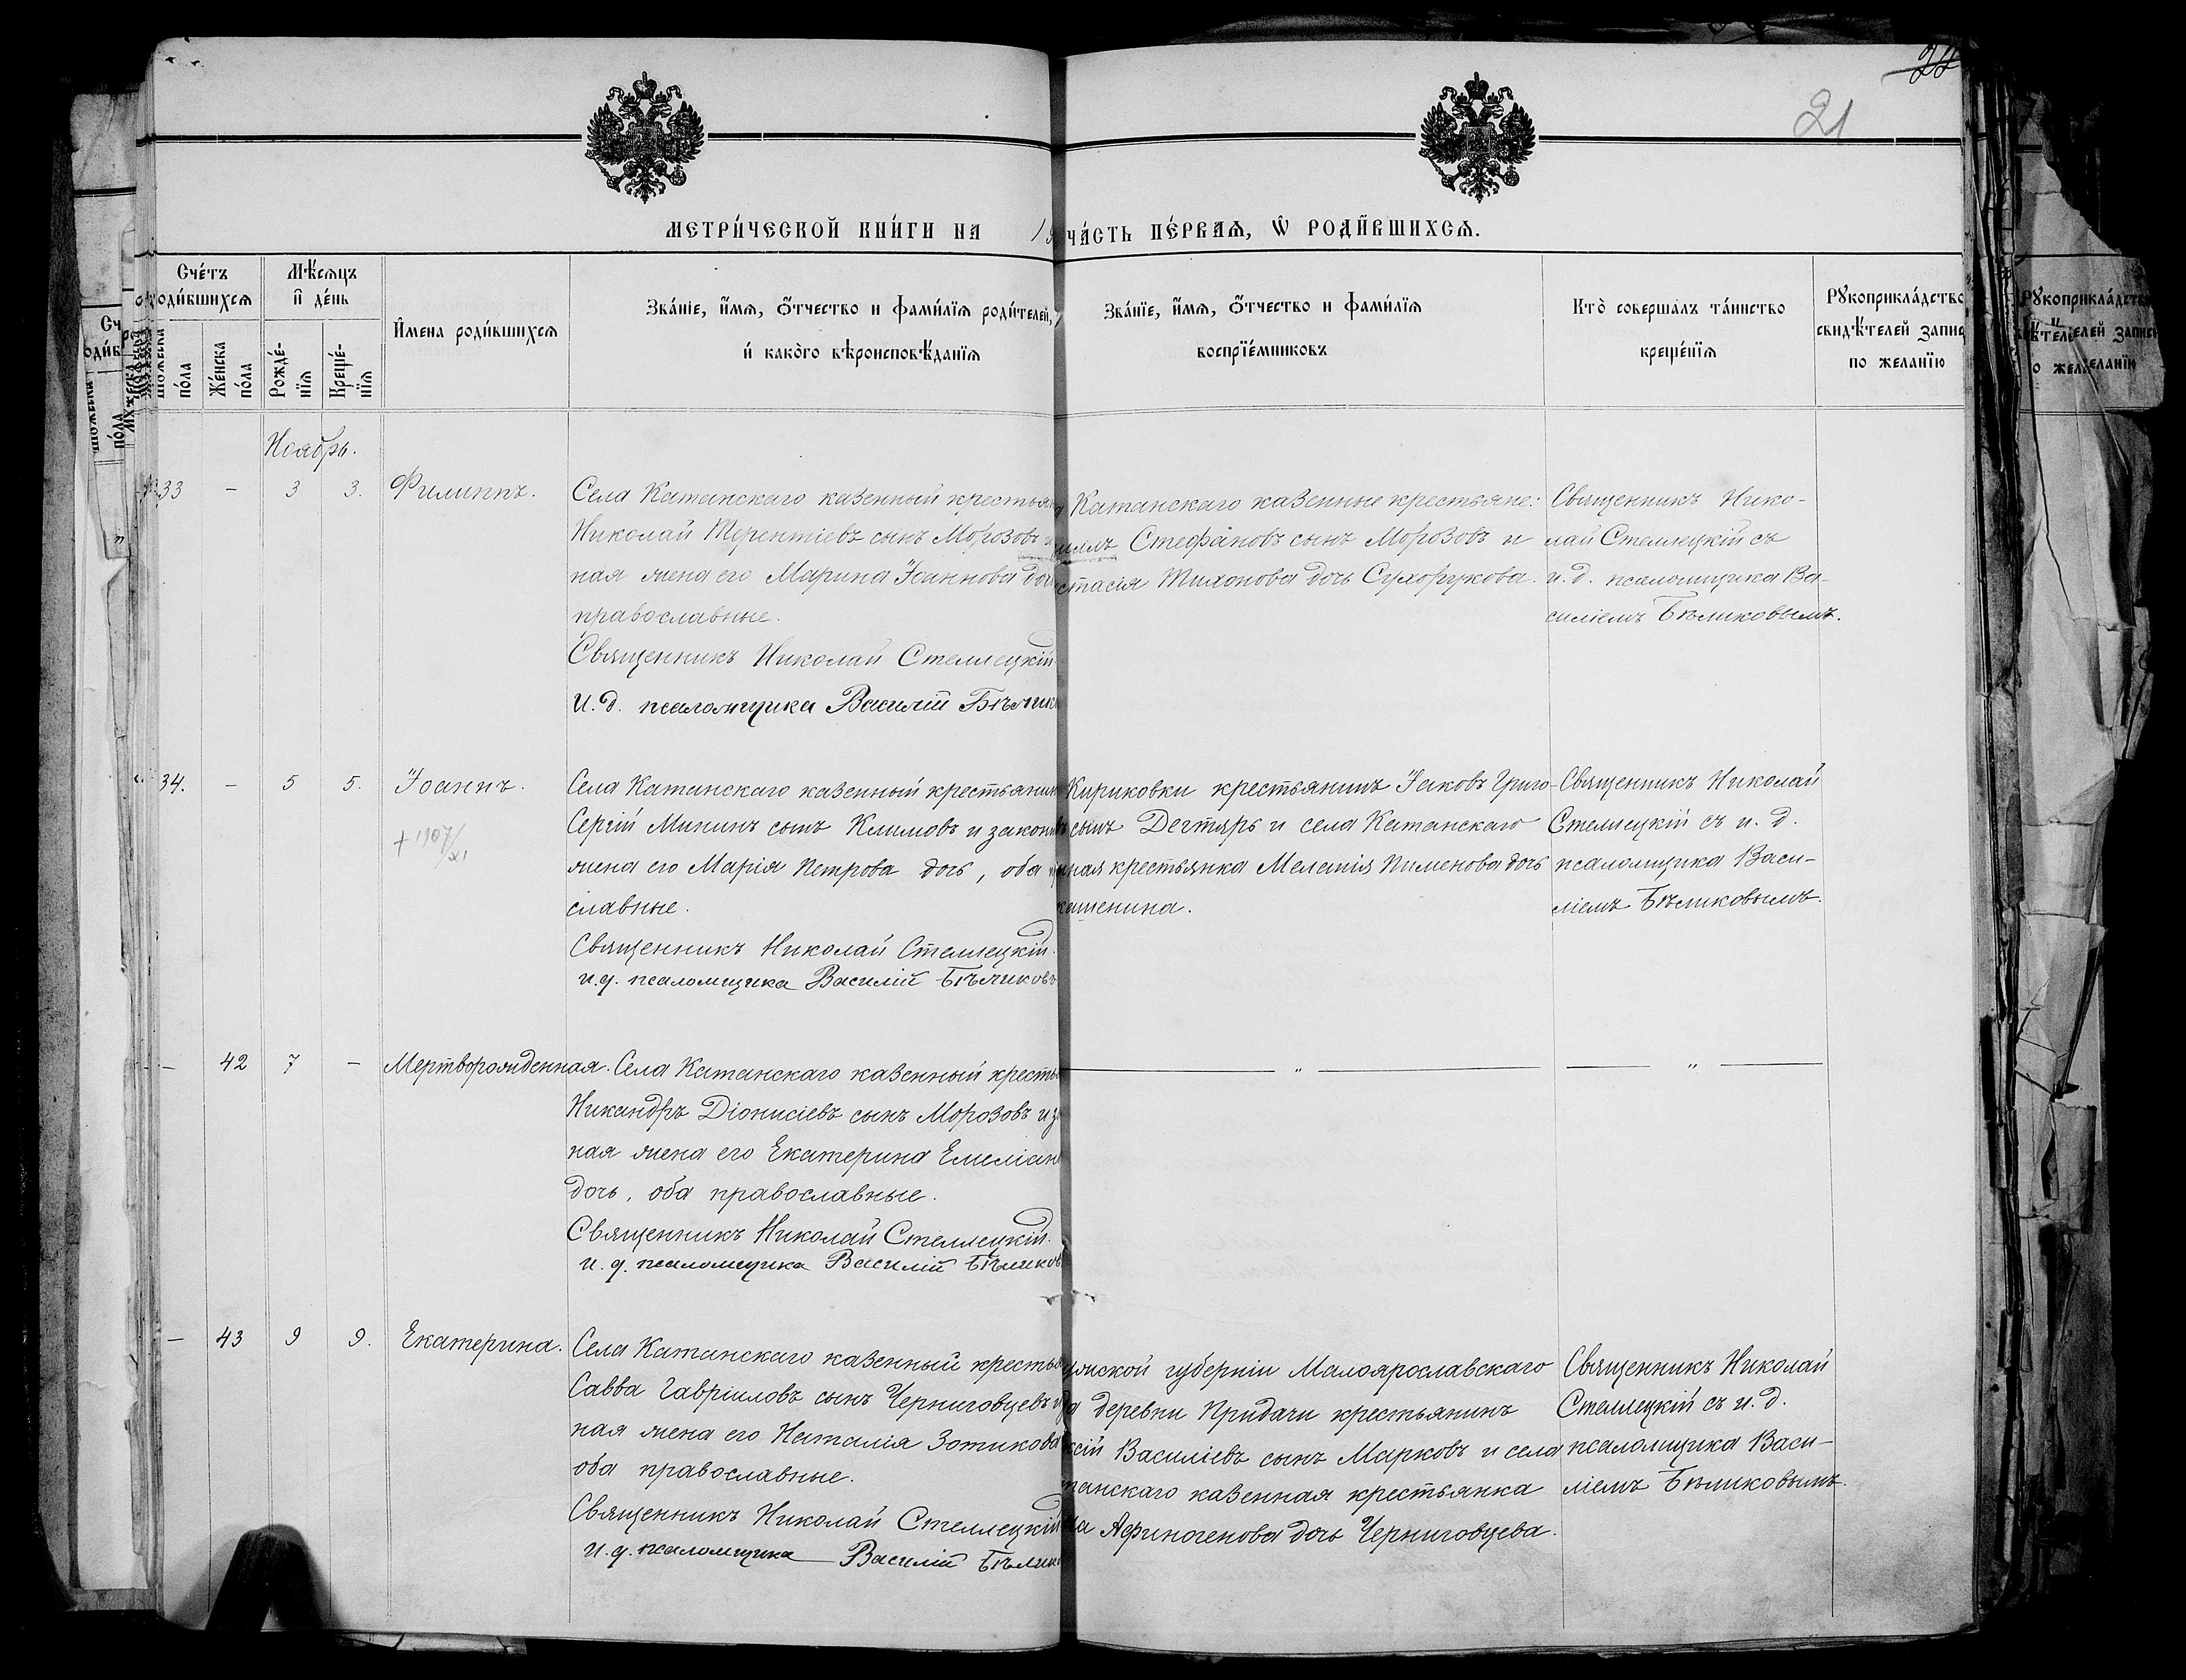 22
21
МЕТРИ́ЧЕСКОЙ КНИ́ГИ НА 19
ЧА́СТЬ ПЕ́РВАѦ, Ѡ҆ РОДИ́ВШИХСѦ.
Сче́тъ
роди́вшихсѧ
Мꙋ́жеска
по́ла
Же́нска
по́ла
Мѣ́сѧцъ
и҆ де́нь
Рожде́-
нїѧ
Креще́-
нїѧ
И҆мена роди́вшихсѧ
Зва́нїе, и҆́мѧ, ѻ҆́тчество и фами́лїѧ роди́телей,
и҆ како́гѡ вѣроисповѣ́данїѧ
Зва́нїе, и҆́мѧ, ѻ҆́тчество и фами́лїѧ
воспрїе́мниковъ
Кто̀ соверша́лъ та́инство
креще́нїѧ
Рꙋкоприкла́дство
свидѣ́телей записи
по жела́нїю
Ноябрь.
33 - 3 3. Филиппъ.
Села Катанскаго казенный крестьян
Николай Терентіевъ сынъ Морозовъ и
ная жена его Марина Іоаннова доч
православные.
Священникъ Николай Стеллецкій
И. д. псаломщика Василій Бѣлик
Катанскаго казенные крестьяне:
Стефановъ сынъ Морозовъ и
стасія Тихонова дочь Сухорукова.
Священникъ Нико-
лай Стеллецкій съ
и. д. псаломщика Ва-
силіемъ Бѣликовымъ.
34. - 5 5. Іоаннъ.
+ 1907/XI
Села Катанскаго казенный крестьянин
Сергій Мининъ сынъ Климовъ и закон
жена его Марія Петрова дочь, оба пра
славные.
Священникъ Николай Стеллецкій.
и. д. псаломщика Василій Бѣликовъ
Кириковки крестьянинъ Іаковъ Григо-
сынъ Дегтярь и села Катанскаго
ная крестьянка Мелатія Пименова дочь
кашенина.
Священникъ Николай
Стеллецкій съ и. д.
псаломщика Васи-
ліемъ Бѣликовымъ.
- 42 7 - Мертворожденная.
Села Катанскаго казенный кресть
Никандръ Діонисіевъ сынъ Морозовъ и з
ная жена его Екатерина Емеліан
дочь, оба православные.
Священникъ Николай Стеллецкій.
и. д. псаломщика Василій Бѣликов
— „ —
— „ —
- 43 9 9. Екатерина.
Села Катанскаго казенный кресть
Савва Гавріиловъ сынъ Черниговцевъ и
ная жена его Наталія Зотикова
оба православные.
Священникъ Николай Стеллецкій
И. д. псаломщика Василій Бѣлик
ужской губерніи Малоярославскаго
да деревни Придачи крестьянинъ
кій Василіевъ сынъ Марковъ и села
танскаго казенная крестьянка
на Афиногенова дочь Черниговцева.
Священникъ Николай
Стеллецкій съ и. д.
псаломщика Васи-
ліемъ Бѣликовымъ.